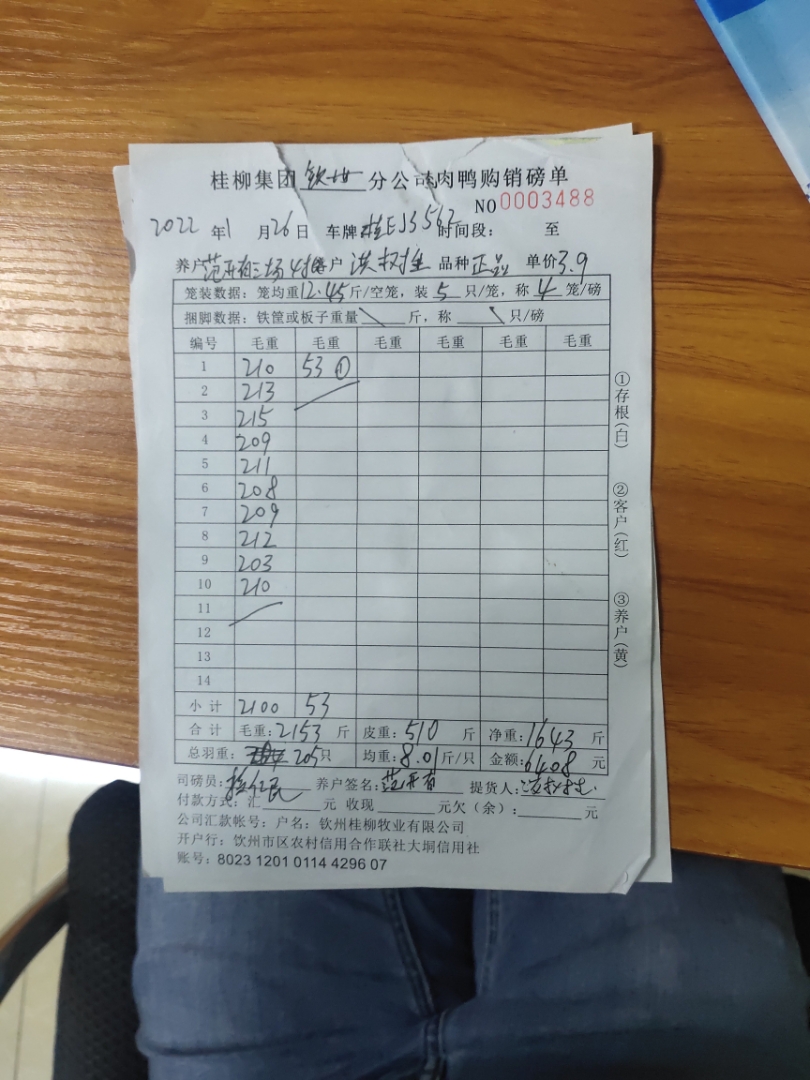 桂柳集团 钦州 分公司肉鸭购销磅单
NO 0003488
2022年1月26日 车牌桂EJ3562 时间段： 至
养户范开有三场4批 客户 品种正品 单价3.9
笼装数据：笼均重12.45斤/空笼，装5只/笼，称4笼/磅
捆脚数据：铁筐或板子重量\斤，称\只/磅
编号 毛重 毛重 毛重 毛重 毛重 毛重
1 210 53①
2 213
3 215
4 209
5 211
6 208
7 209
8 212
9 203
10 210
11
12
13
14
小计 2100 53
合计 毛重：2153斤 皮重：510斤 净重：1643斤
总羽重： 205只 均重：8.01斤/只 金额：6408元
司磅员： 养户签名：范开有 提货人：
付款方式：汇 元 收现 元欠（余）： 元
公司汇款帐号：户名：钦州桂柳牧业有限公司
开户行：钦州市区农村信用合作联社大垌信用社
账号：8023 1201 0114 4296 07
①存根（白）
②客户（红）
③养户（黄）